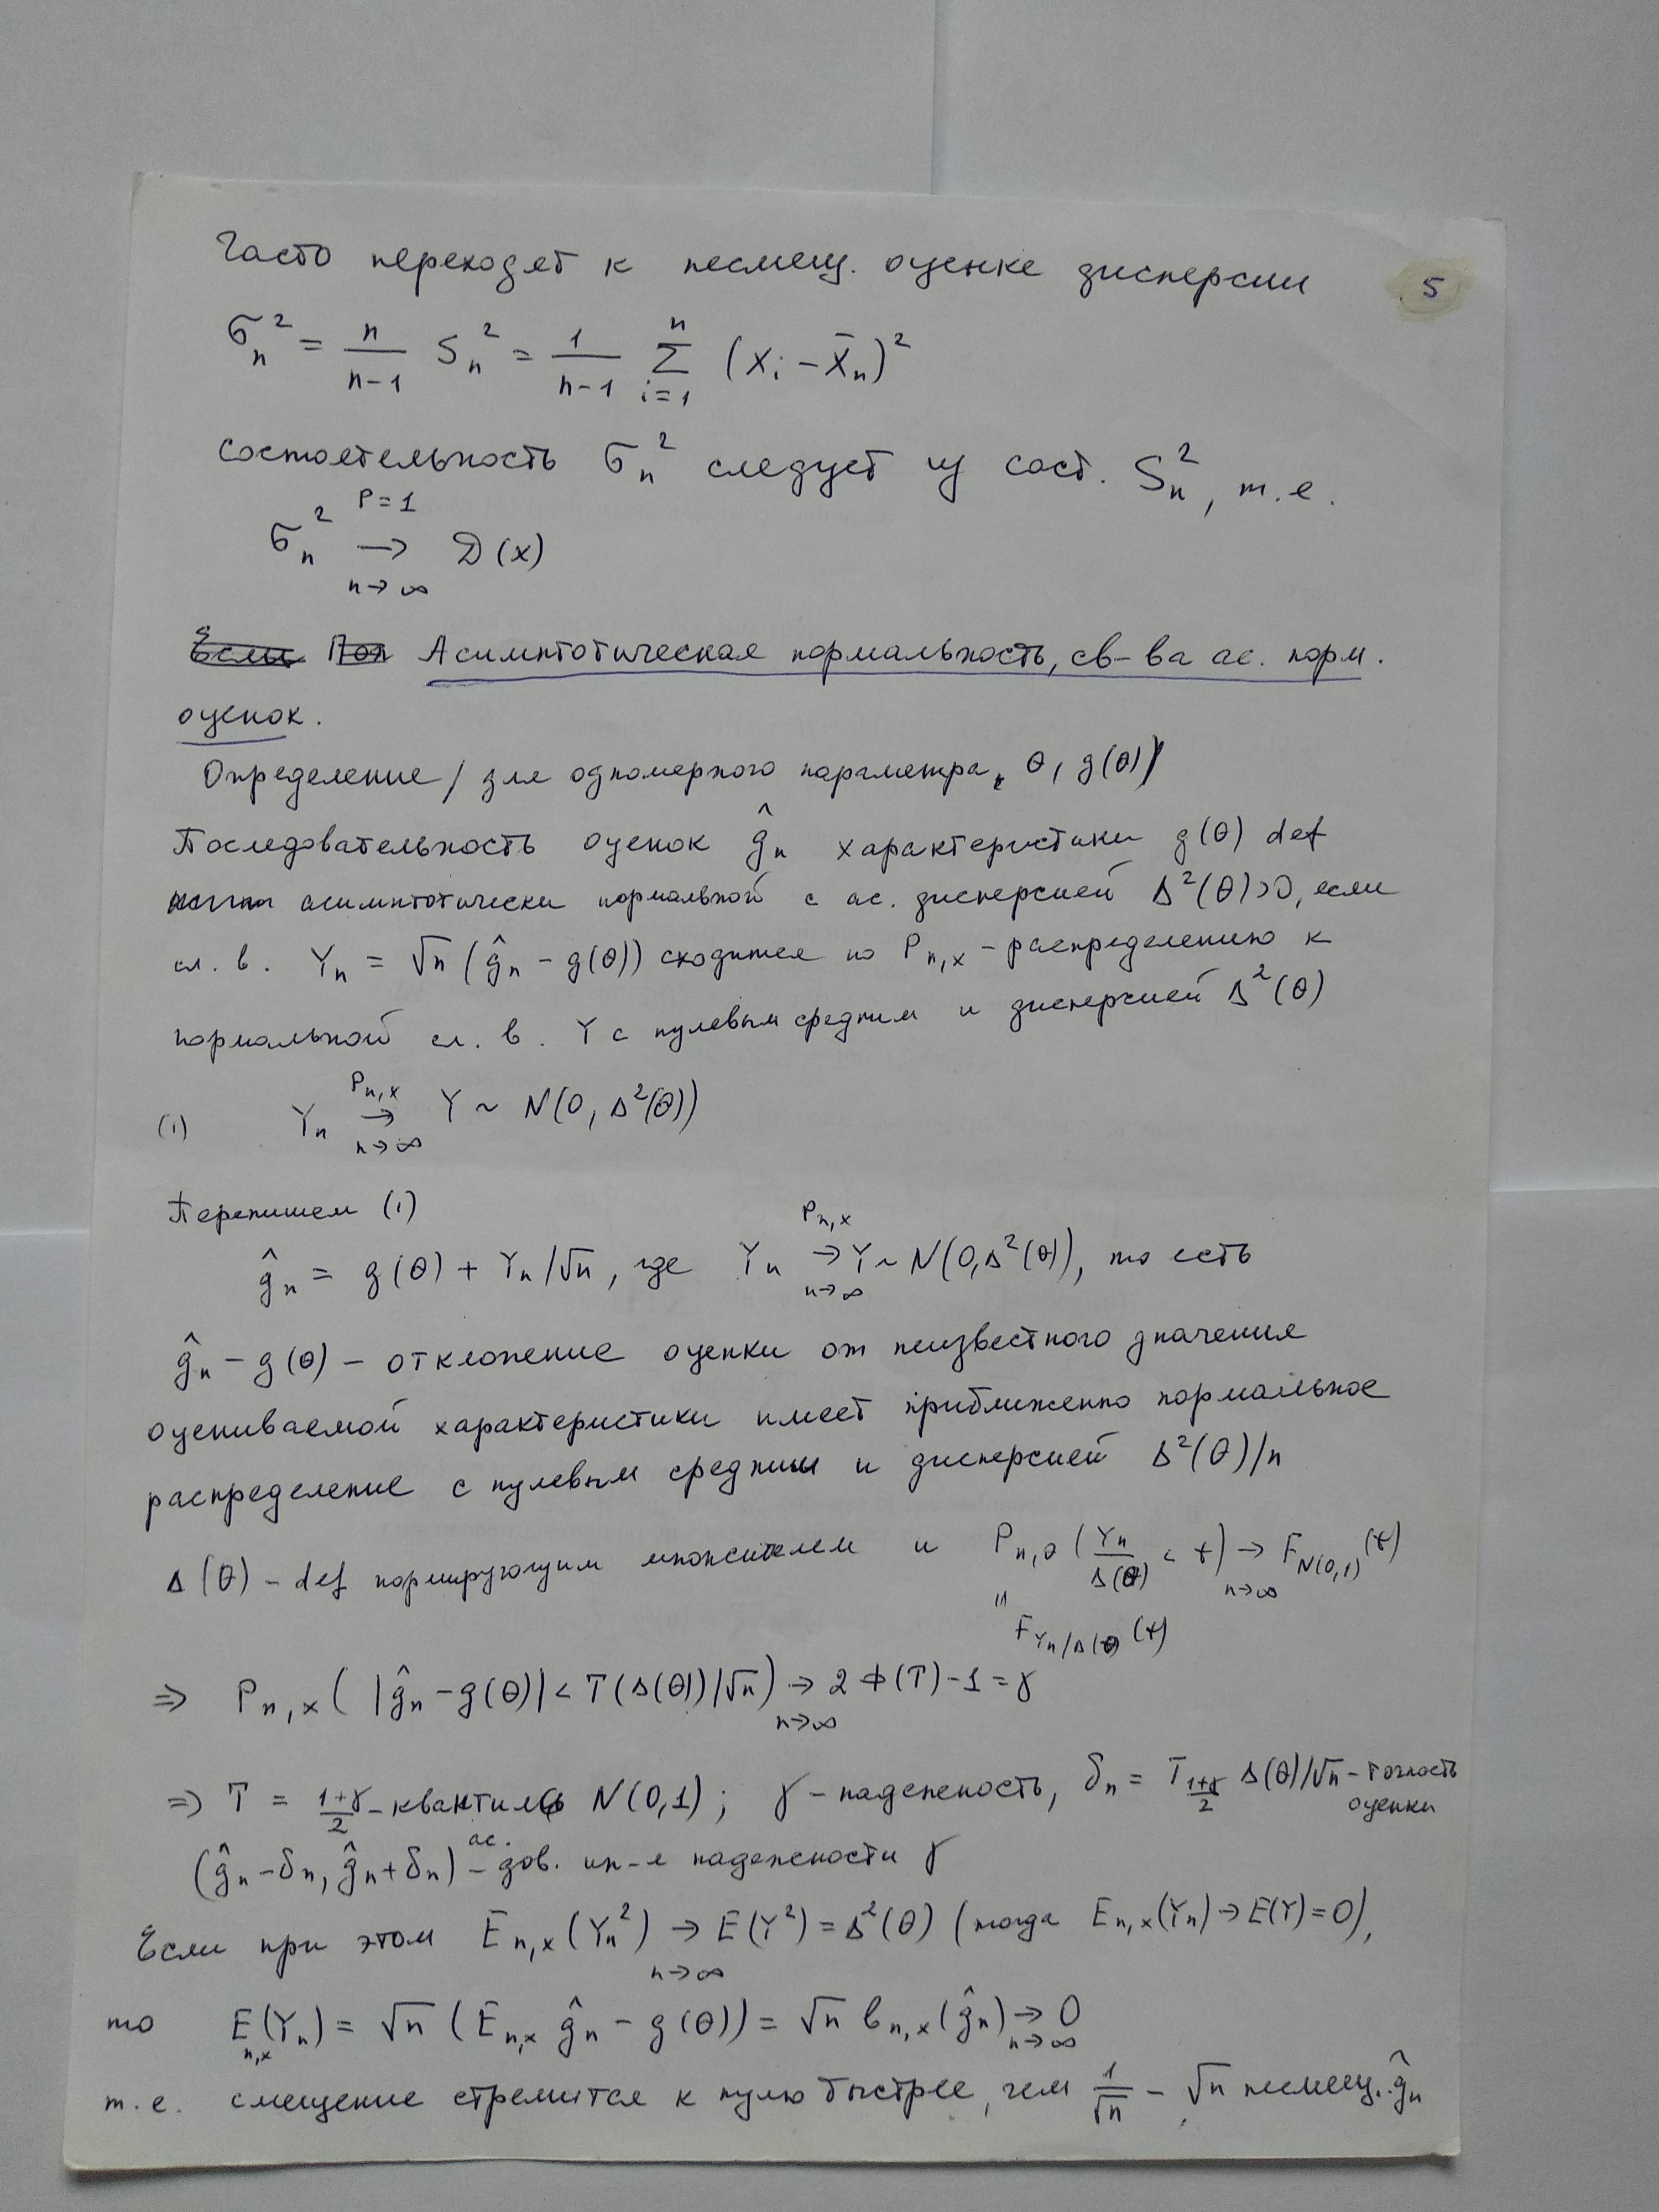 Часто переходят к несмещ. оценке дисперсии
5
σ_n^2 = n/(n-1) S_n^2 = 1/(n-1) Σ_{i=1}^{n} (X_i - X̄_n)^2
состоятельность σ_n^2 следует из сост. S_n^2, т.е.
σ_n^2 →_{n→∞}^{P=1} D(x)
Асимптотическая нормальность, св-ва ас. норм.
оценок.
Определение / для одномерного параметра, θ, g(θ) /
Последовательность оценок ĝ_n характеристики g(θ) def
асимптотически нормальной с ас. дисперсией Δ^2(θ)>0, если
сл. в. Y_n = √n (ĝ_n - g(θ)) сходится по P_{n,x} - распределению к
нормальной сл. в. Y с нулевым средним и дисперсией Δ^2(θ)
(1) Y_n →_{n→∞}^{P_{n,x}} Y ~ N(0, Δ^2(θ))
Перепишем (1)
ĝ_n = g(θ) + Y_n/√n, где Y_n →_{n→∞}^{P_{n,x}} Y ~ N(0, Δ^2(θ)), то есть
ĝ_n - g(θ) - отклонение оценки от неизвестного значения
оцениваемой характеристики имеет приближенно нормальное
распределение с нулевым средним и дисперсией Δ^2(θ)/n
Δ(θ) - def нормирующим множителем и P_{n,θ} (Y_n/Δ(θ) < t) →_{n→∞} F_{N(0,1)}(t)
= F_{Y_n/Δ(θ)}(t)
⇒ P_{n,x} ( |ĝ_n - g(θ)| < T(Δ(θ))/√n) →_{n→∞} 2Ф(T) - 1 = γ
⇒ T = (1+γ)/2 - квантиль N(0,1); γ - надежность, δ_n = T_{(1+γ)/2} Δ(θ)/√n - точность оценки
(ĝ_n - δ_n, ĝ_n + δ_n) - ас. дов. ин-л надежности γ
Если при этом E_{n,x}(Y_n^2) →_{n→∞} E(Y^2) = Δ^2(θ) (тогда E_{n,x}(Y_n) → E(Y) = 0),
то E_{n,x}(Y_n) = √n (E_{n,x} ĝ_n - g(θ)) = √n b_{n,x}(ĝ_n) →_{n→∞} 0
т.е. смещение стремится к нулю быстрее, чем 1/√n - √n несмещ. ĝ_n